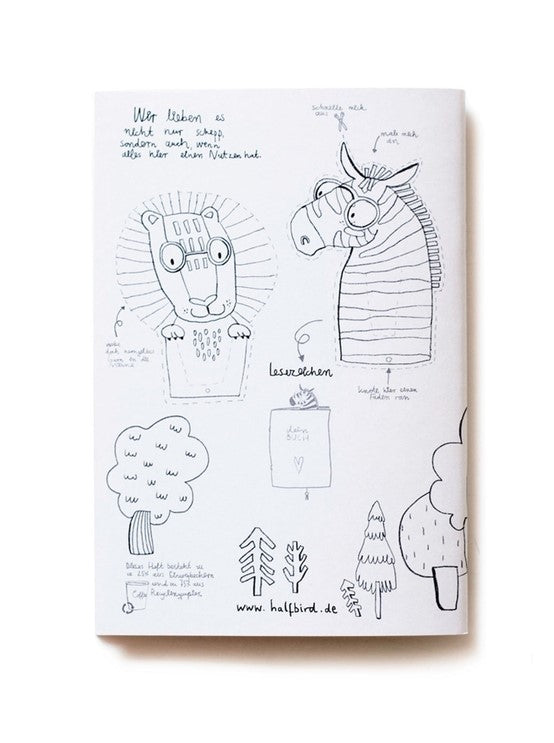 Wir lieben es
nicht nur schepp,
sondern auch, wenn
alles hier einen Nutzen hat.
schneide mich
aus
male mich
an
Lesezeichen
knote hier einen
Faden ran
dein
BUCH
Dieses Heft besteht zu
25% aus Einwegbechern
und zu 75% aus
Recyclingpapier
www.halfbird.de